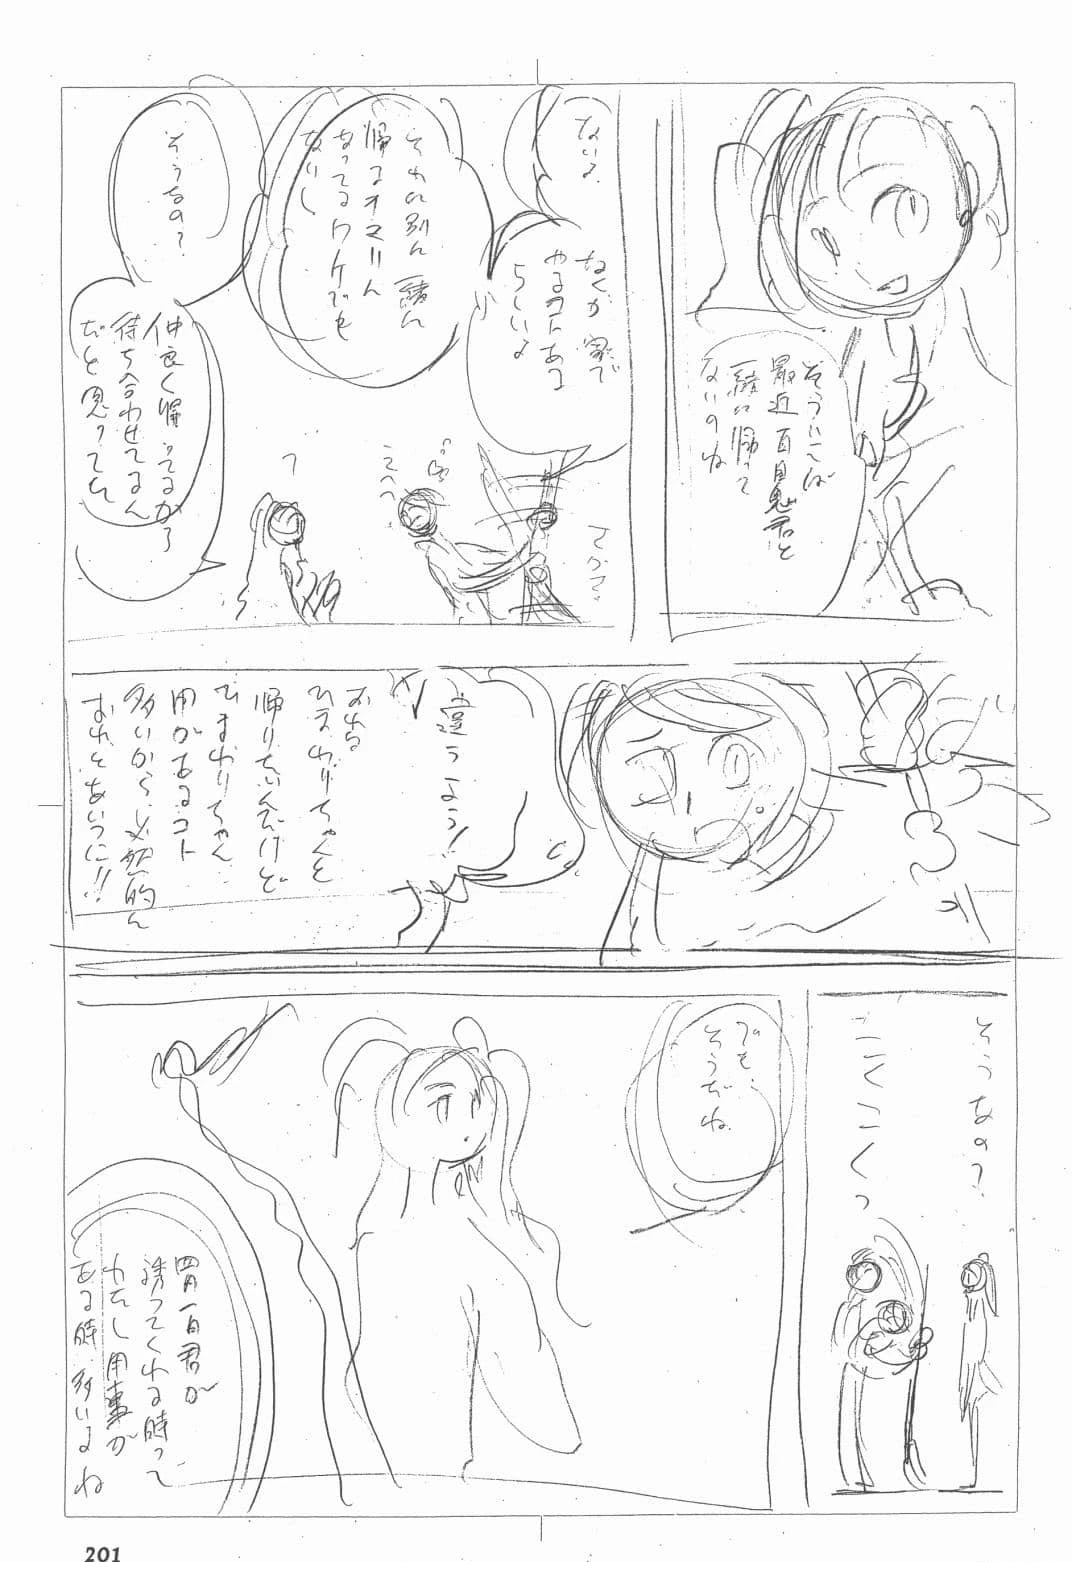 そういえば
最近百目鬼君と
一緒に帰って
ないのね
ないよ
なんか家で
やるコトある
らしいよ
それに別に一緒に
帰るキマリに
なってるワケでも
ないし
そうなの?
仲良く帰ってるか
待ち合わせてるん
だと思ってた
?
違うよう!
おれは
ひまわりちゃんと
帰りたいんだけど
ひまわりちゃん
用があるコト
多いから必然的に
おれとあいつに!!
そうなの?
こくこくっ
でも
そうだね
四月一日君が
誘ってくれる時って
わたし用事が
ある時多いよね
201